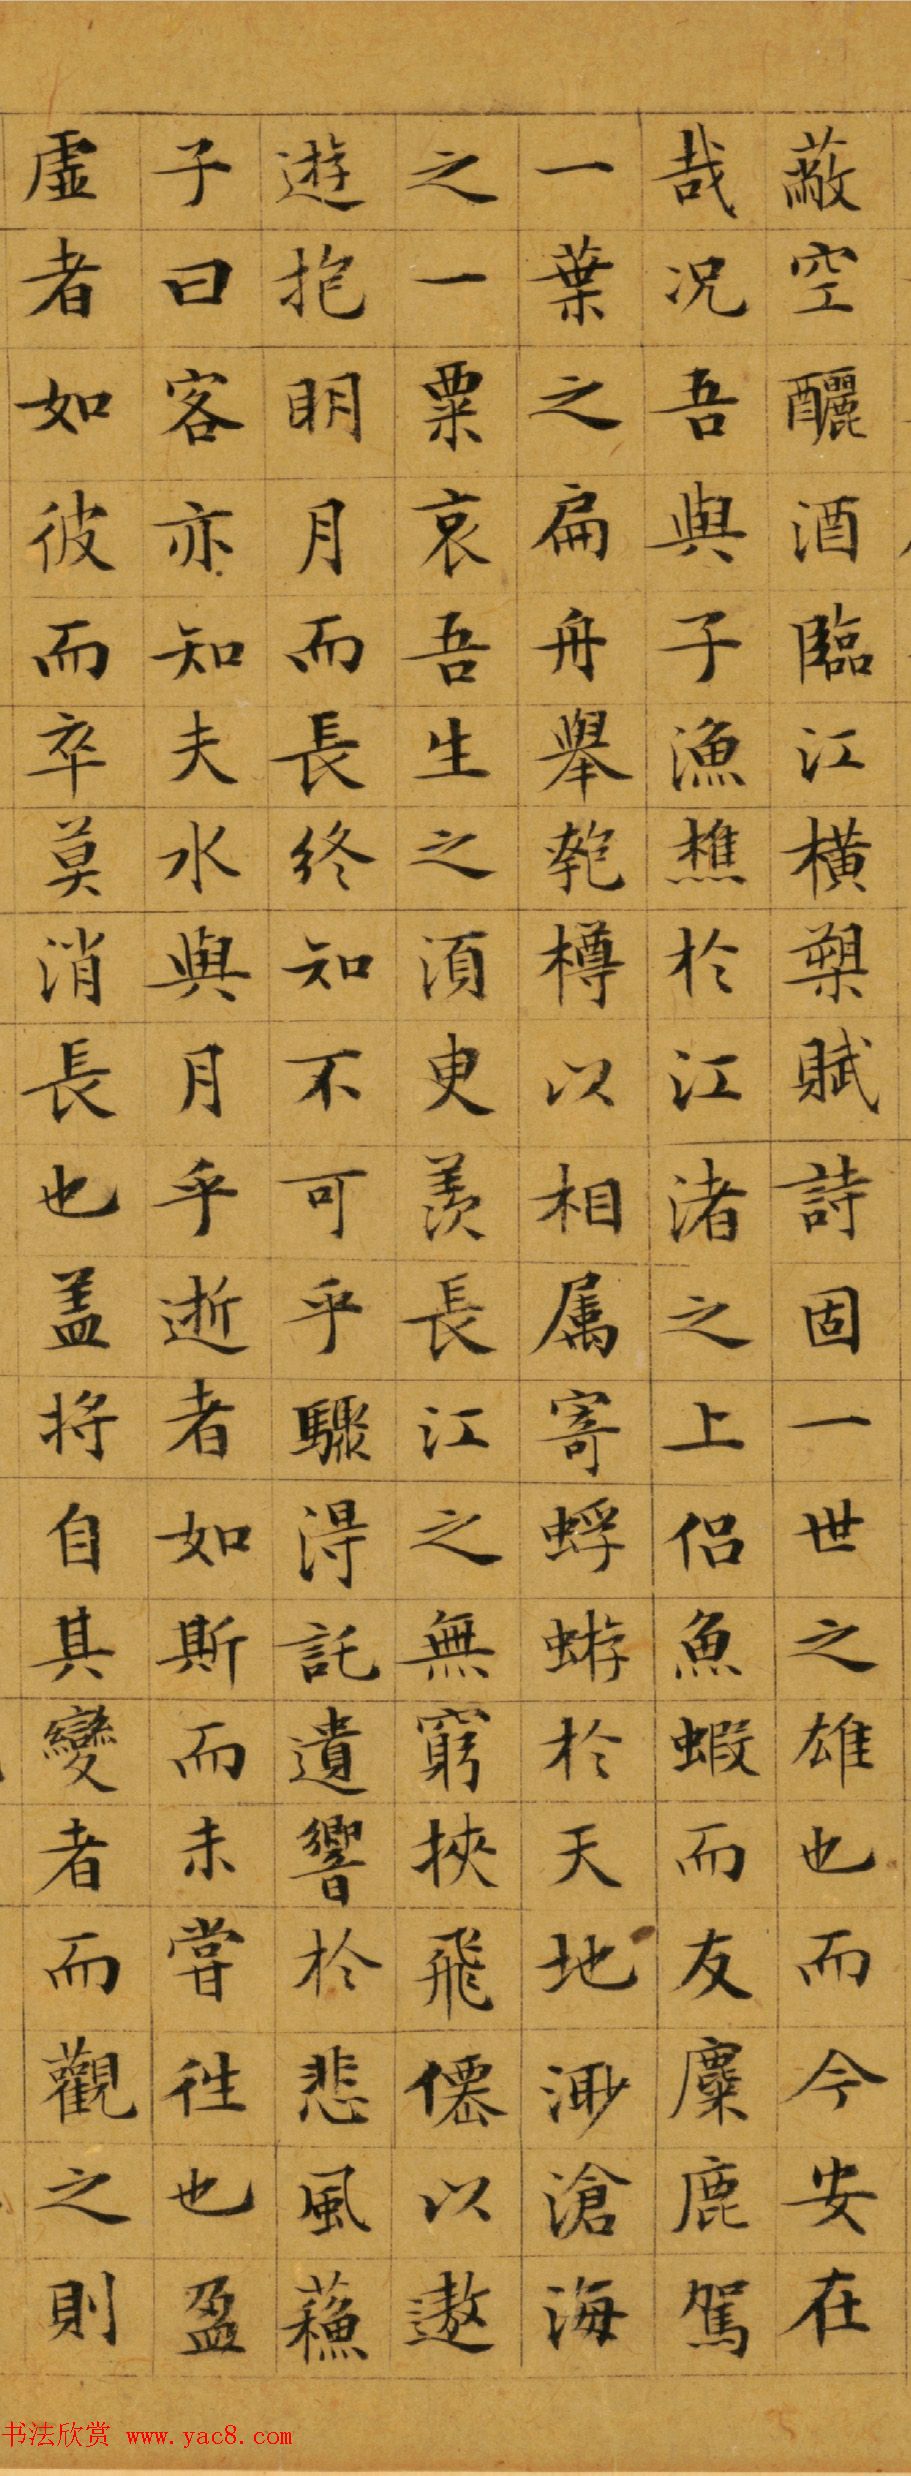 蔽空釃酒臨江橫槊賦詩固一世之雄也而今安在
哉况吾與子漁樵於江渚之上侶魚蝦而友麋鹿駕
一葉之扁舟舉匏樽以相属寄蜉蝣於天地渺滄海
之一粟哀吾生之須臾羨長江之無窮挾飛僊以遨
遊抱明月而長終知不可乎驟得託遺響於悲風蘓
子曰客亦知夫水與月乎逝者如斯而未嘗往也盈
虛者如彼而卒莫消長也盖将自其變者而觀之則
书法欣赏 www.yac8.com